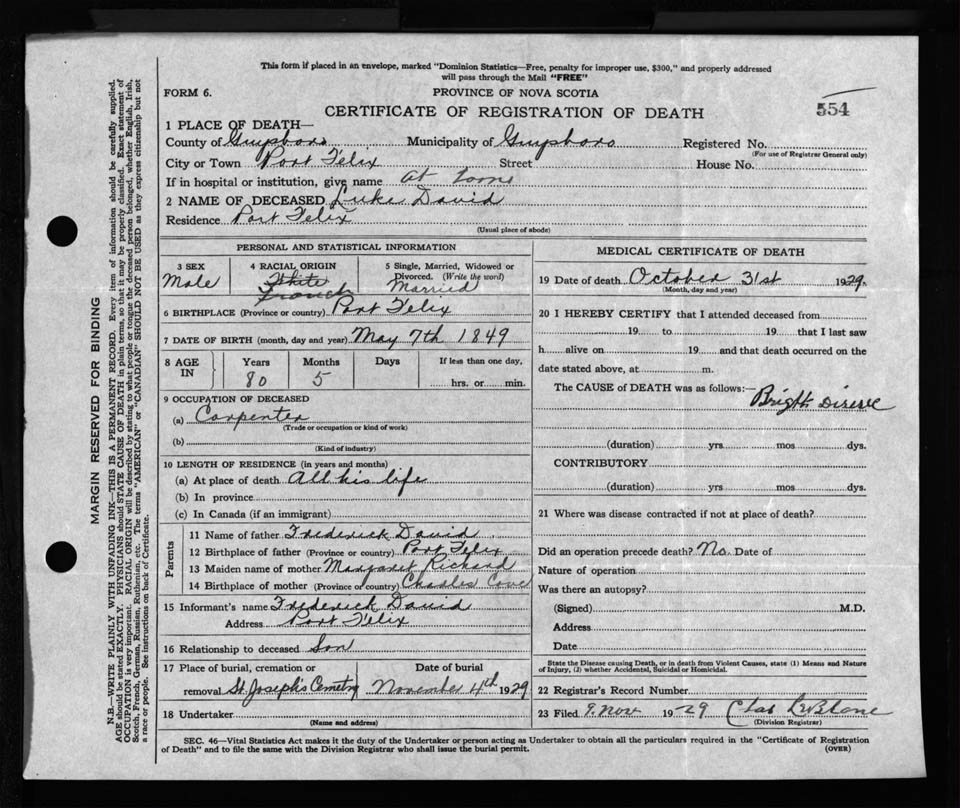 This form if placed in an envelope, marked "Dominion Statistics—Free, penalty for improper use, $300," and properly addressed
will pass through the Mail "FREE"
FORM 6.
PROVINCE OF NOVA SCOTIA
554
CERTIFICATE OF REGISTRATION OF DEATH
1 PLACE OF DEATH—
County of Guysboro Municipality of Guysboro Registered No.
(For use of Registrar General only)
City or Town Port Felix Street House No.
If in hospital or institution, give name At home
2 NAME OF DECEASED Luke David
Residence Port Felix
(Usual place of abode)
PERSONAL AND STATISTICAL INFORMATION
3 SEX 4 RACIAL ORIGIN 5 Single, Married, Widowed or Divorced. (Write the word)
Male White French Married
6 BIRTHPLACE (Province or country) Port Felix
7 DATE OF BIRTH (month, day and year) May 7th 1849
8 AGE IN Years Months Days If less than one day,
80 5 hrs. or min.
9 OCCUPATION OF DECEASED
(a) Carpenter
(Trade or occupation or kind of work)
(b)
(Kind of industry)
10 LENGTH OF RESIDENCE (in years and months)
(a) At place of death All his life
(b) In province
(c) In Canada (if an immigrant)
Parents
11 Name of father Frederick David
12 Birthplace of father (Province or country) Port Felix
13 Maiden name of mother Margaret Richard
14 Birthplace of mother (Province or country) Charles Cove
15 Informant's name Frederick David
Address Port Felix
16 Relationship to deceased Son
17 Place of burial, cremation or Date of burial
removal St Joseph's Cemetry November 4th 1929
18 Undertaker
(Name and address)
MEDICAL CERTIFICATE OF DEATH
19 Date of death October 31st 1929.
(Month, day and year)
20 I HEREBY CERTIFY that I attended deceased from
19 to 19 that I last saw
h alive on 19 and that death occurred on the
date stated above, at m.
The CAUSE of DEATH was as follows:—
Bright Disease
(duration) yrs mos dys.
CONTRIBUTORY
(duration) yrs. mos dys.
21 Where was disease contracted if not at place of death?
Did an operation precede death? No. Date of
Nature of operation
Was there an autopsy?
(Signed) M.D.
Address
Date
State the Disease causing Death, or in death from Violent Causes, state (1) Means and Nature
of Injury, (2) whether Accidental, Suicidal or Homicidal.
22 Registrar's Record Number
23 Filed 9 Nov 1929 Chas
(Division Registrar)
SEC. 46—Vital Statistics Act makes it duty of the Undertaker or person acting as Undertaker to obtain all the particulars required in the "Certificate of Registration
of Death" and to file the same with the Division Registrar who shall issue the burial permit. (OVER)
MARGIN RESERVED FOR BINDING
N.B.—WRITE PLAINLY WITH UNFADING INK—THIS IS A PERMANENT RECORD. Every item of information should be carefully supplied.
AGE should be stated EXACTLY. PHYSICIANS should STATE CAUSE OF DEATH in plain terms, so that it may be properly classified. Exact statement of
OCCUPATION is very important. RACIAL ORIGIN will be described by stating to what people or tongue the deceased person belonged, whether English, Irish,
Scotch, French, German, Russian, Ruthenian, etc. The terms "AMERICAN" or "CANADIAN" SHOULD NOT BE USED as they express citizenship but not
a race or people. See instructions on back of Certificate.